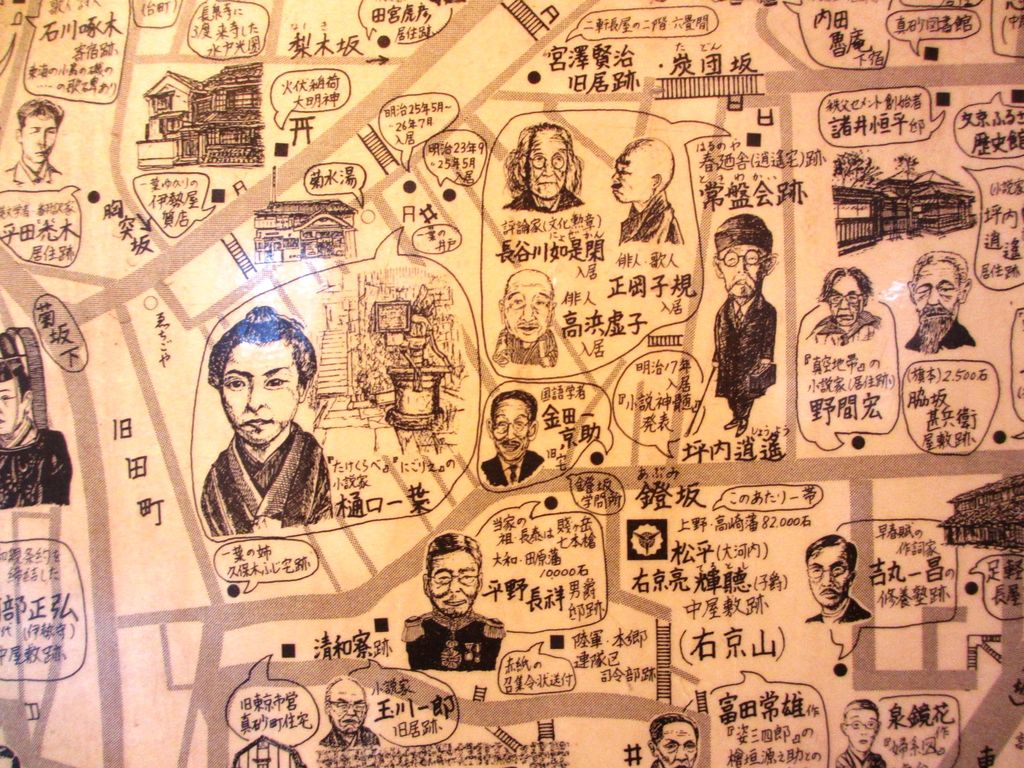 石川啄木
寄宿跡
東海の小島の磯の
…の歌碑あり
(台町)
長泉寺に
3度来寺した
水戸光圀
梨木坂
なしき
田宮虎彦
居住跡
二軒長屋の二階 六畳間
宮澤賢治
旧居跡
たどん
炭団坂
内田
魯庵
下宿
真砂図書館
火伏稲荷
大明神
明治25年5月~
26年7月
入居
明治23年9
~25年5月
入居
一葉ゆかりの
伊勢屋
質店
菊水湯
一葉の
井戸
平田禿木
居住跡
胸
突
坂
菊坂
下
ゑちごや
旧
田
町
評論家(文化勲章)
にょぜかん
長谷川如是閑
入居
俳人・歌人
正岡子規
入居
俳人
高浜虚子
入居
はるのや
春廼舎(逍遥宅)跡
ときわかい
常盤会跡
秩父セメント創始者
諸井恒平邸
文京ふるさ
歴史館
(小説家)
坪内
逍遥
居住跡
『真空地帯』の
小説家(居住跡)
野間宏
(旗本)2,500石
脇坂
甚兵衛
屋敷跡
明治17年
入居
『小説神髄』
発表
しょうよう
坪内逍遥
国語学者
金田一
京助
旧宅
『たけくらべ』『にごりえ』の
小説家
樋口一葉
一葉の姉
久保木ふじ宅跡
鐙坂
学問所
あぶみ
鐙坂
このあたり一帯
上野・高崎藩82,000石
松平(大河内)
右京亮 輝聴(子爵)
中屋敷跡
(右京山)
当家の
祖・長泰は賤ヶ岳
七本槍
大和・田原藩
10000石
平野長祥 男爵
邸跡
早春賦の
作詞家
吉丸一昌の
修養塾跡
足軽
長屋
締結した
部正弘
中屋敷跡
清和寮跡
陸軍・本郷
連隊区
司令部跡
赤紙の
召集令状送付
旧東京市営
真砂町住宅
小説家
玉川一郎
旧居跡
富田常雄作
『姿三四郎』の
檜垣源之助との
泉鏡花